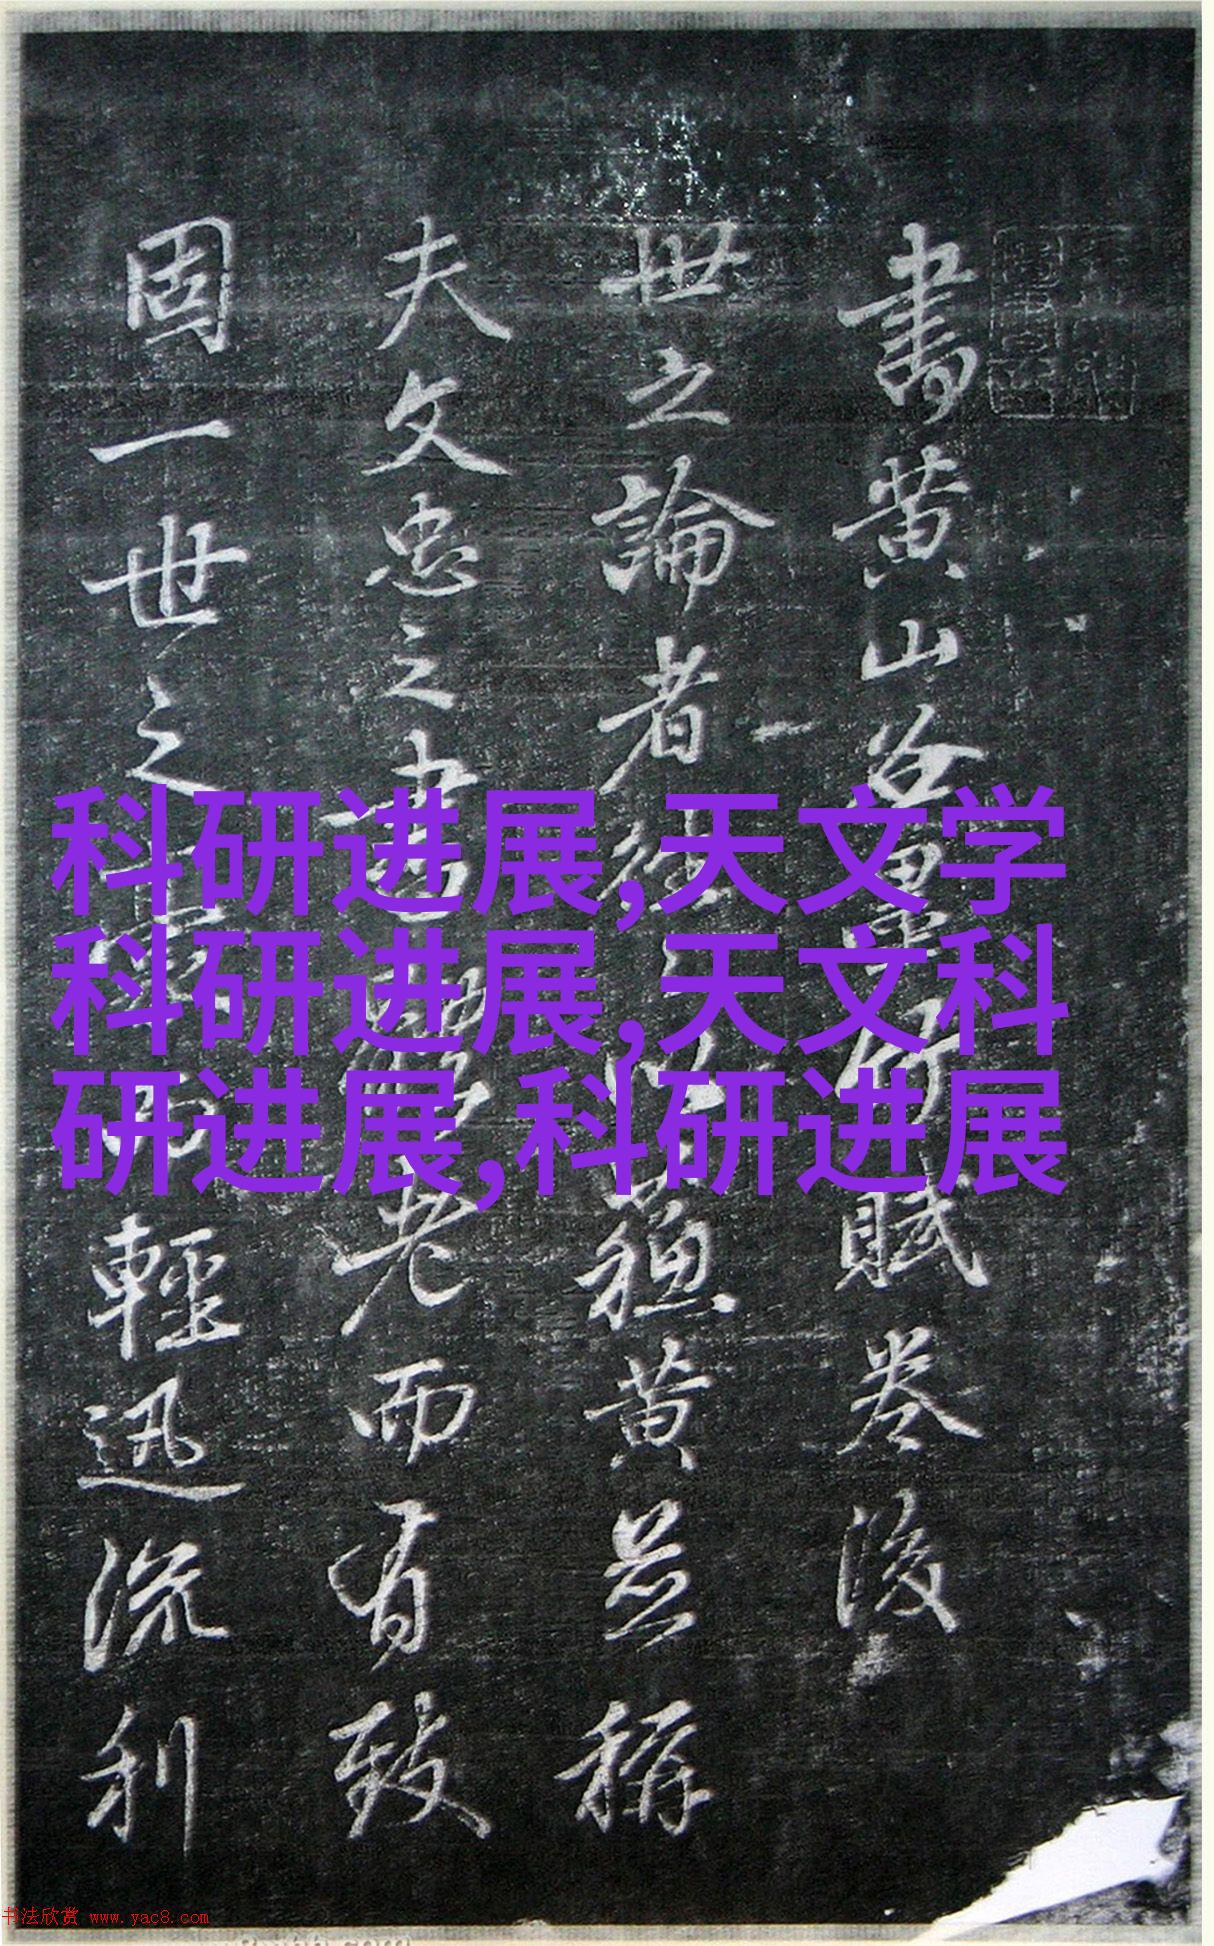 書黄山谷墨竹賦卷後
世之論者往以蘓黄並稱
夫文忠之書體老而有致
固一世之輕迅流利
科研进展,天文学
科研进展,天文科
研进展,科研进展
书法欣赏 www.yac8.com